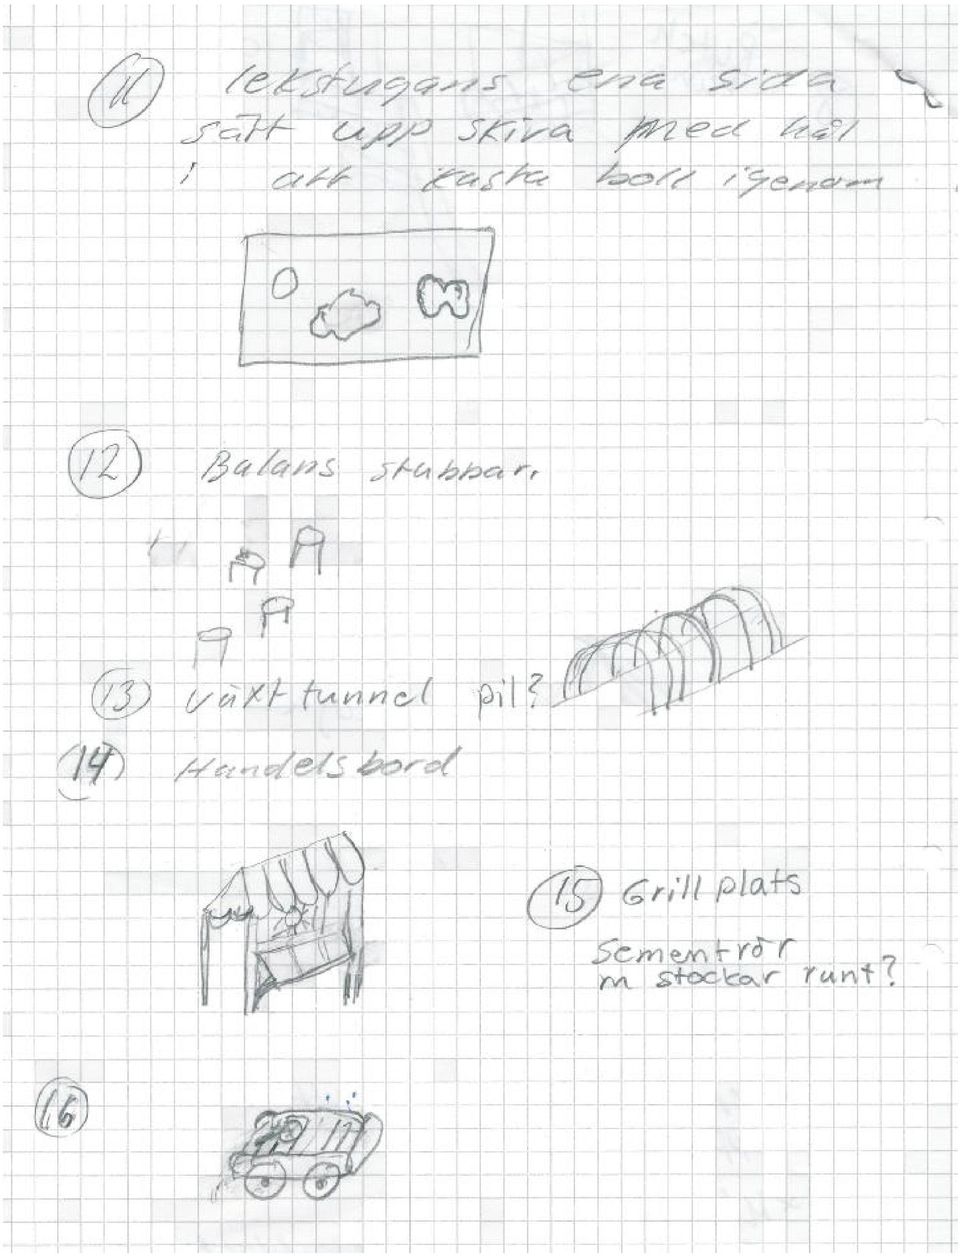 11 lekstugans ena sida
sätt upp skiva med hål
i att kasta boll igenom.
12 Balans stubbar.
13 växttunnel pil?
14 Handelsbord
15 Grillplats
Sementrör
m stockar runt?
16